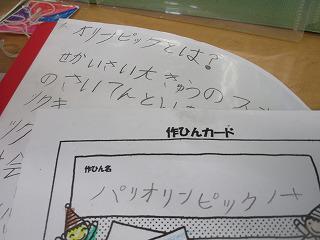 オリンピックとは?
せかいさい大きゅうのス
のさいてんといわ
ック
作ひんカード
作ひん名
パリオリンピックノート